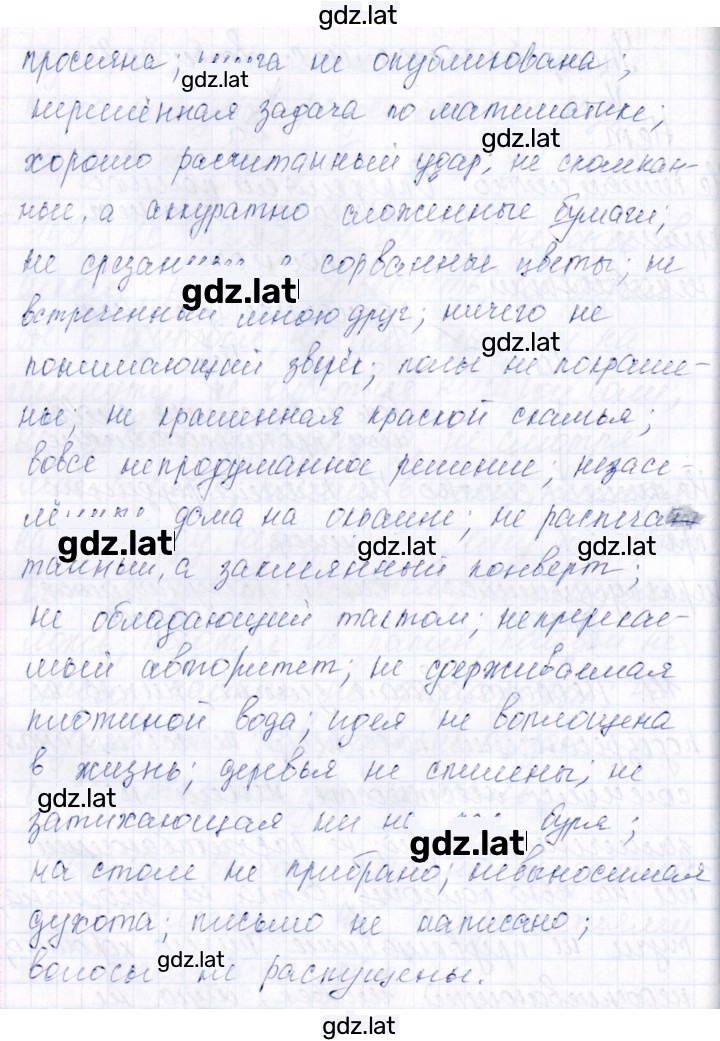 gdz.lat
просеяна; не опубликована;
gdz.lat
нерешённая задача по математике;
gdz.lat
хорошо рассчитанный удар; не скомкан-
ные, а аккуратно сложенные бумаги;
не сорванные цветы; не
gdz.lat
встреченный мною друг; ничего не
gdz.lat
понимающий зверёк; полы не покраше-
ны; не крашенная краской скамья;
вовсе непродуманное решение; незасе-
дома на окраине; не распеча
gdz.lat gdz.lat gdz.lat
танный, а заклеянный конверт;
не обладающий тактом; непререкае-
мый авторитет; не сдерживаемая
плотиной вода; идея не воплощена
в жизнь; деревья не спилены; не
gdz.lat
затихающая ни на буря;
gdz.lat
на столе не прибрано; невыносимая
духота; письмо не написано;
волосы не распущены.
gdz.lat
gdz.lat